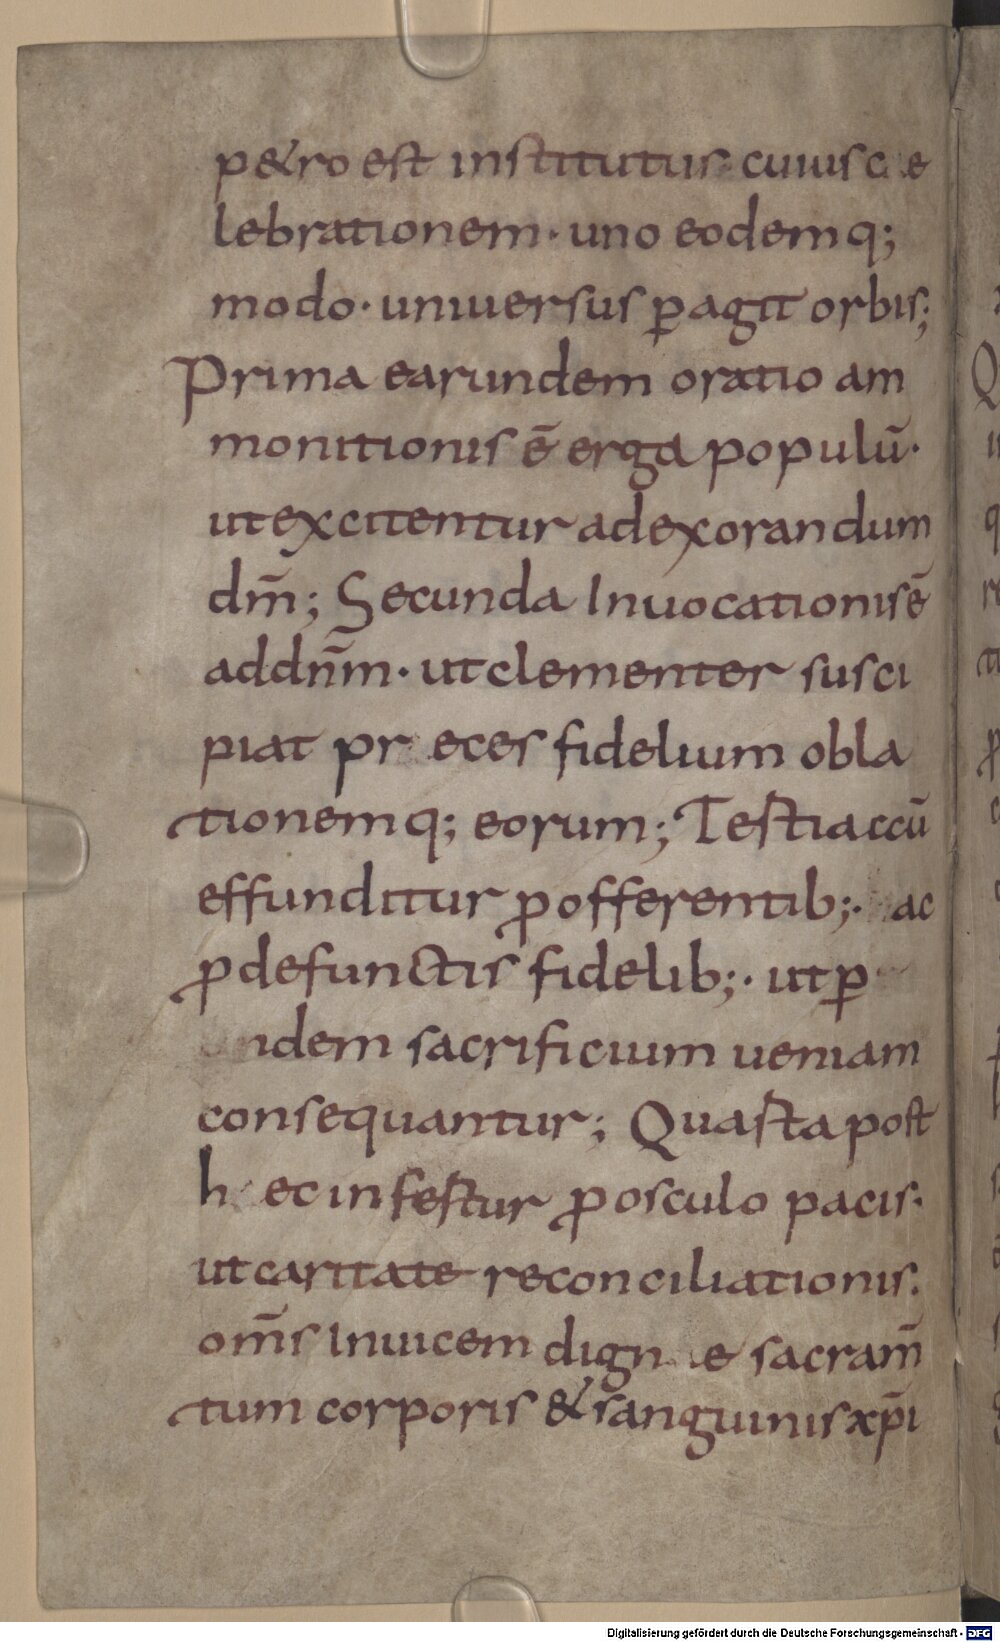 p&ro est institutus· cuius c e
lebrationem· uno eodemq;
modo· uniuersus ꝑagit orbis;
Prima earundem oratio am
monitionis ē erga populū·
ut excitentur ad exorandum
dm̄; Secunda Inuocationis ē
ad dn̄m· ut clementer susci
piat pr eces fidelium obla
tionemq; eorum; Testia ccū
effunditur ꝓ offerentib;· ac
ꝓ defunctis fidelib;· ut ꝑ
idem sacrificium ueniam
consequantur; Quasta post
h ec infestur ꝓ osculo pacis·
ut caritate reconciliationis·
om̄s Inuicem dign e sacram̄
tum corporis & sanguinis xp̄i
Digitalisierung gefördert durch die Deutsche Forschungsgemeinschaft - DFG